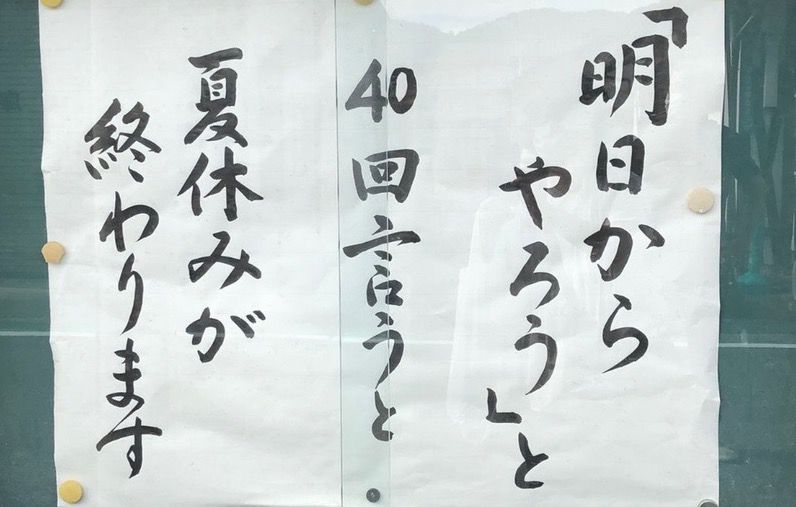 「明日から
やろう」と
40回言うと
夏休みが
終わります